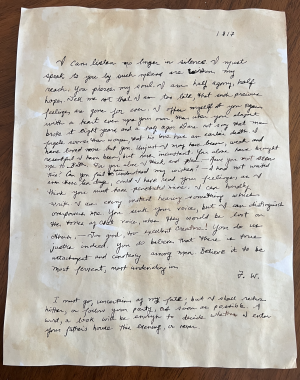 1817
I can listen no longer in silence. I must
speak to you by such means as are within my
reach. You pierce my soul. I am half agony, half
hope. Tell me not that I am too late, that such precious
feelings are gone for ever. I offer myself to you again
with a heart even more your own than when you almost
broke it eight years and a half ago. Dare not say that man
forgets sooner than woman, that his love has an earlier death. I
have loved none but you. Unjust I may have been, weak and
resentful I have been, but never inconstant. You alone have brought
me to Bath. For you alone I think and plan. Have you not seen
this? Can you fail to understand my wishes? I had not waited
even these ten days, could I have read your feelings, as I
think you must have penetrated mine. I can hardly
write. I am every instant hearing something which
overpowers me. You sink your voice, but I can distinguish
the tones of that voice when they would be lost on
others. Too good, too excellent creature! You do us
justice indeed. You do believe that there is true
attachment and constancy among men. Believe it to be
most fervent, most undeviating in
F. W.
I must go, uncertain of my fate; but I shall return
hither, or follow your party, as soon as possible. A
word, a look will be enough to decide whether I enter
your father's house this evening or never.